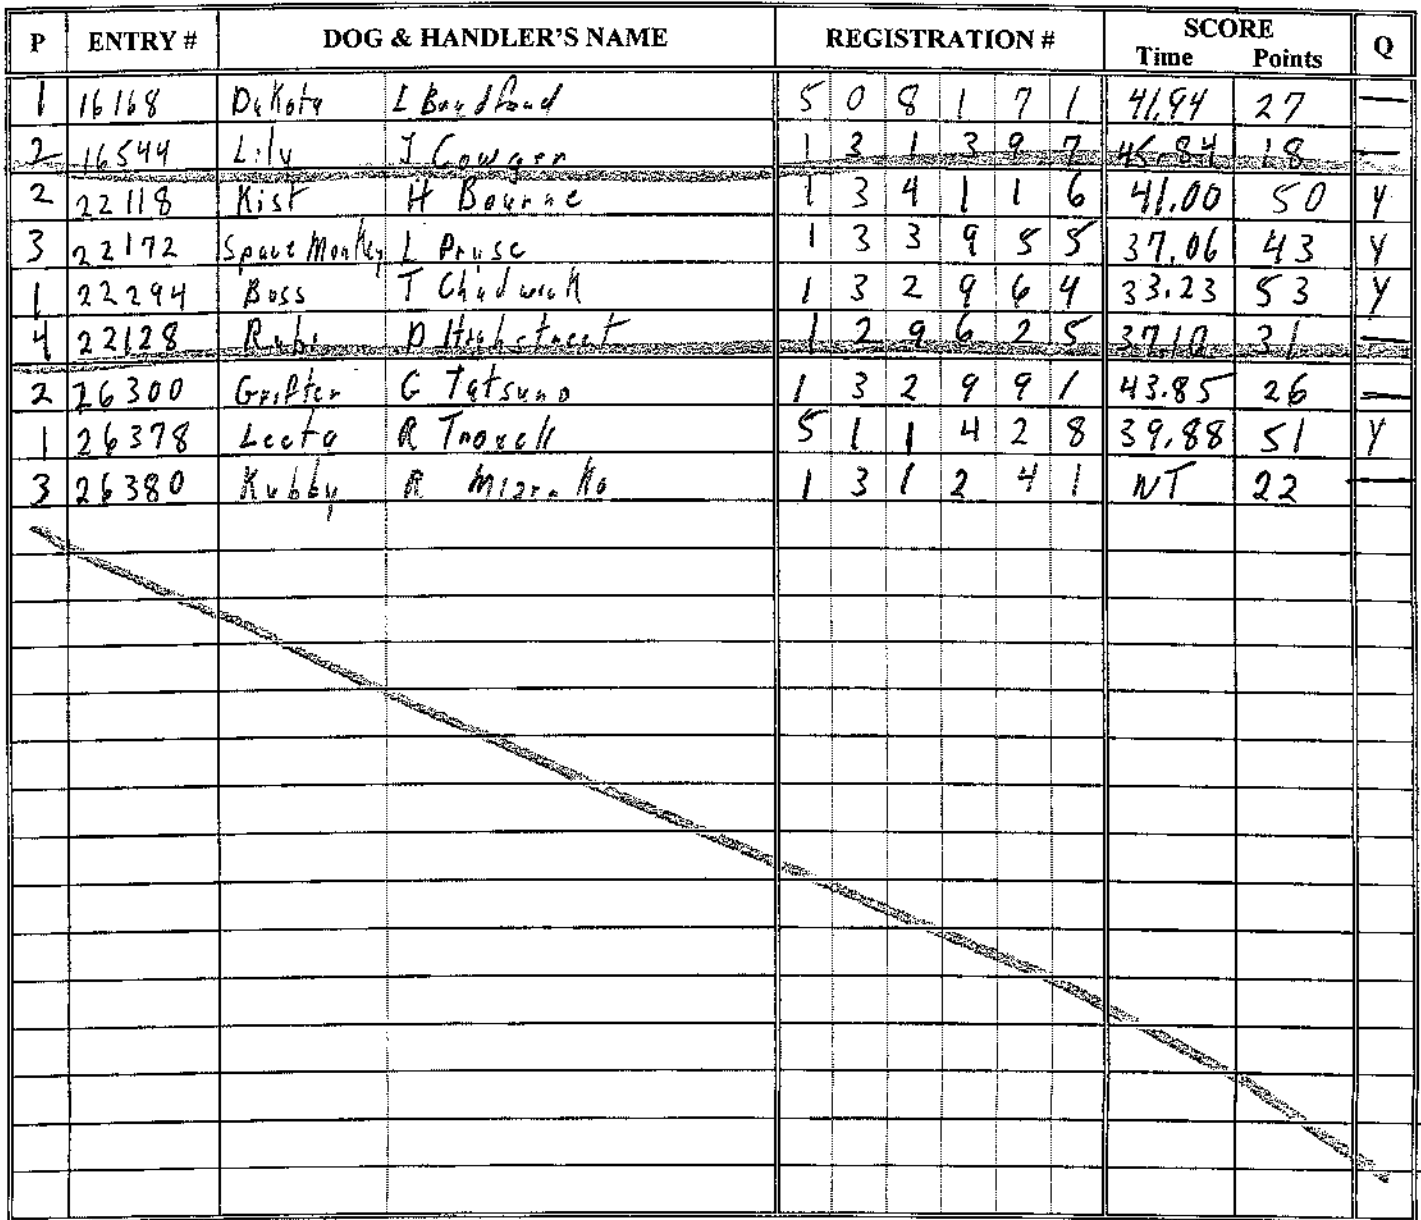 P ENTRY # DOG & HANDLER'S NAME REGISTRATION # SCORE Time Points Q
1 16168 Dakota L Bradford 5 0 8 1 7 1 41.94 27 —
2 16544 Lily J Cowger 1 3 1 3 9 7 45.84 18 —
2 22118 Kist H Bourne 1 3 4 1 1 6 41.00 50 Y
3 22172 Space Monkey L Pruse 1 3 3 9 5 5 37.06 43 Y
1 22294 Boss T Chadwick 1 3 2 9 6 4 33.23 53 Y
4 22128 Rubi D Highstreet 1 2 9 6 2 5 37.10 31 —
2 26300 Grifter G Tatsuno 1 3 2 9 9 1 43.85 26 —
1 26378 Leeta R Troxell 5 1 1 4 2 8 39.88 51 Y
3 26380 Kubby R 1 3 1 2 4 1 NT 22 —